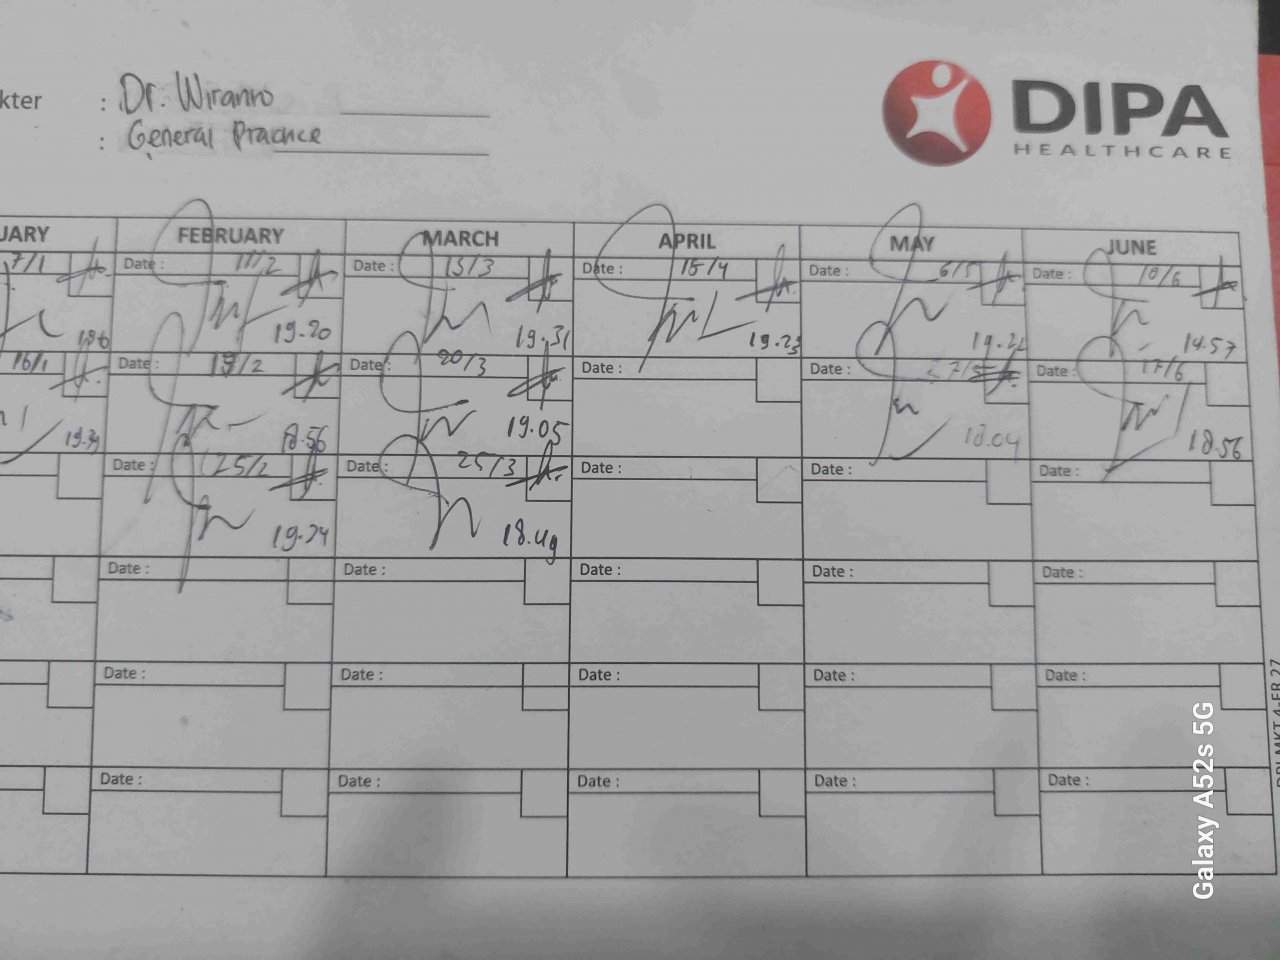 kter : Dr. Wiranto
: General Practice
DIPA
HEALTHCARE
UARY FEBRUARY MARCH APRIL MAY JUNE
7/1 Date : 11/2 Date : 15/3 Date : 15/4 Date : 6/5 Date : 10/6
19.20 19.31 19.23 14.57
16/1 Date : 19/2 Date : 20/3 Date : Date : Date : 17/6
19.39 18.56 19.05 18.04 18.56
Date : 25/2 Date : 25/3 Date : Date : Date :
19.24 18.49
Date : Date : Date : Date : Date :
Date : Date : Date : Date : Date :
Date : Date : Date : Date : Date :
Galaxy A52s 5G